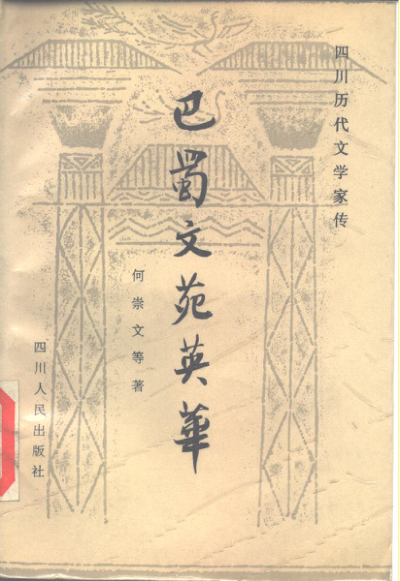 四川历代文学家传
巴蜀文苑英華
何崇文等著
四川人民出版社